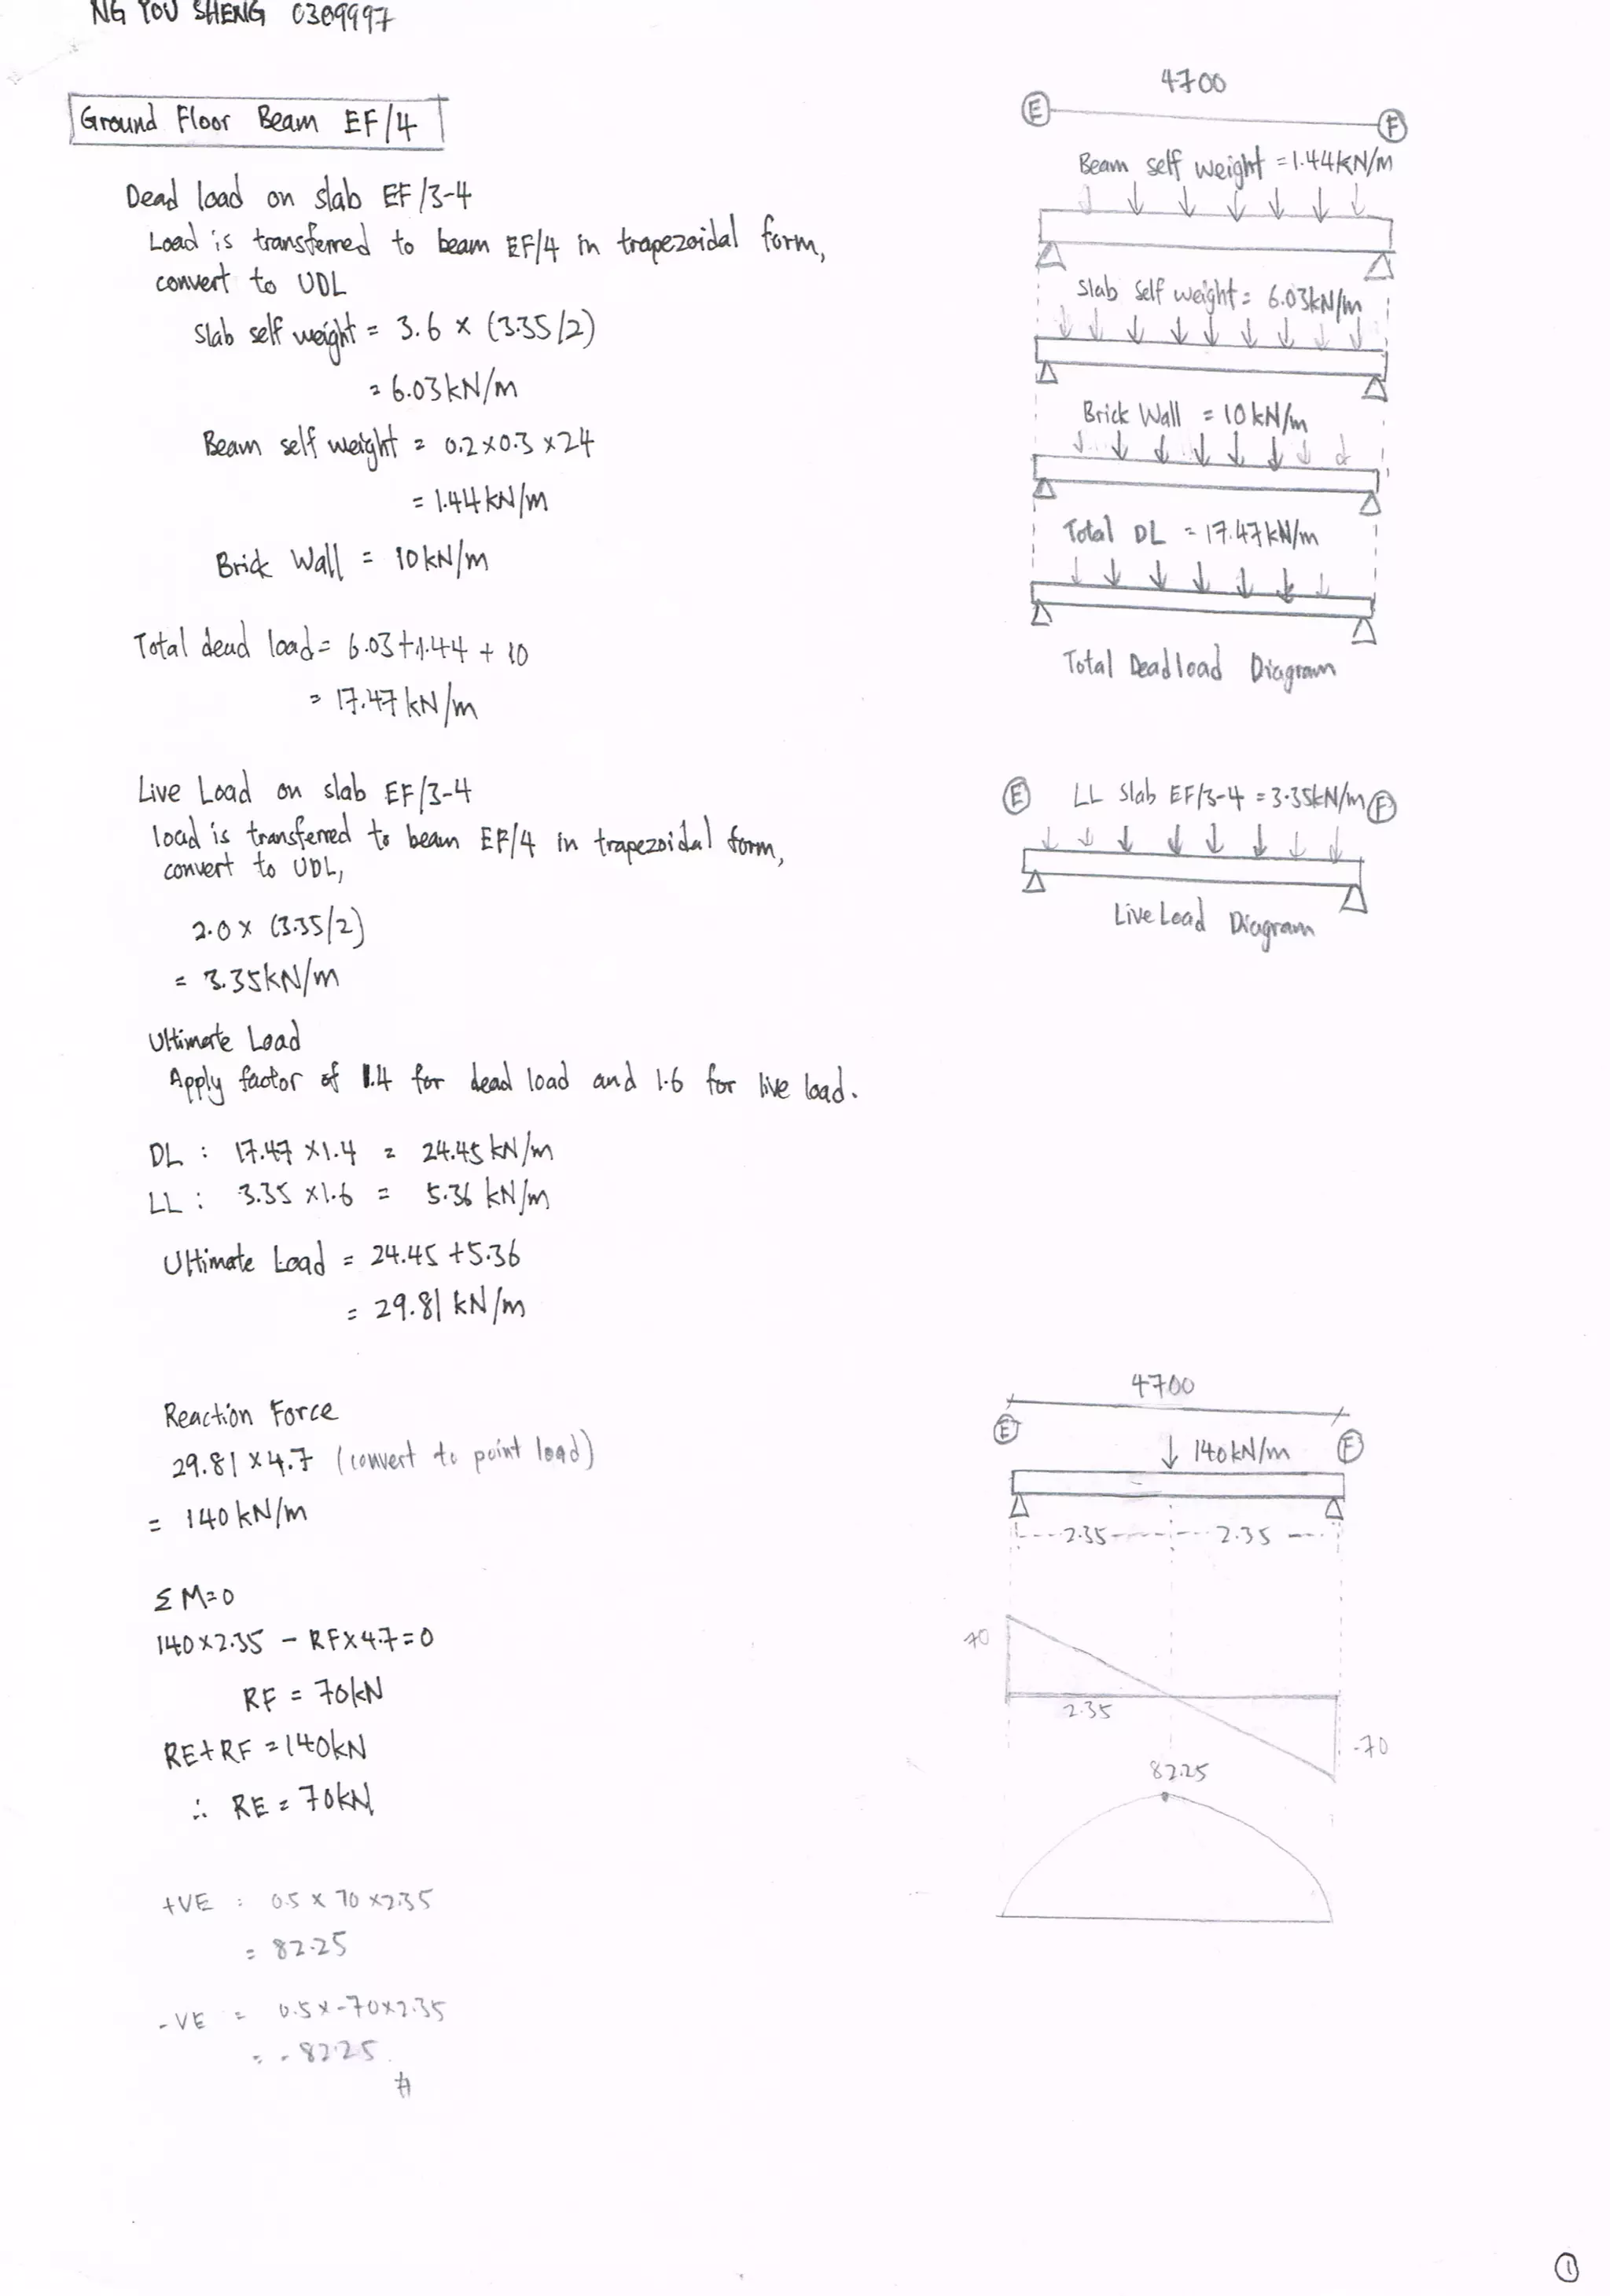 NG YOU SHENG 0309997
Ground Floor Beam EF/4
Dead load on slab EF/3-4
Load is transferred to beam EF/4 in trapezoidal form,
convert to UDL
Slab self weight = 3.6 × (3.35/2)
= 6.03kN/m
Beam self weight = 0.2×0.3×24
= 1.44kN/m
Brick Wall = 10kN/m
Total dead load = 6.03+1.44 + 10
= 17.47kN/m
Live Load on slab EF/3-4
load is transferred to beam EF/4 in trapezoidal form,
convert to UDL,
2.0 × (3.35/2)
= 3.35kN/m
Ultimate Load
Apply factor of 1.4 for dead load and 1.6 for live load.
DL : 17.47 ×1.4 = 24.45 kN/m
LL : 3.35 ×1.6 = 5.36 kN/m
Ultimate Load = 24.45 +5.36
= 29.81 kN/m
Reaction Force
29.81 ×4.7 (convert to point load)
= 140kN/m
Σ M=0
140×2.35 - RF×4.7=0
RF = 70kN
RE+RF =140kN
∴ RE = 70kN
+VE : 0.5 × 70 ×2.35
= 82.25
-VE = 0.5×-70×2.35
= -82.25
#
4700
E F
Beam self weight =1.44kN/m
Slab self weight = 6.03kN/m
Brick Wall = 10kN/m
Total DL = 17.47kN/m
Total Dead load Diagram
E LL Slab EF/3-4 =3.35kN/m F
Live Load Diagram
4700
E 140kN/m F
2.35 2.35
70
2.35
-70
82.25
1